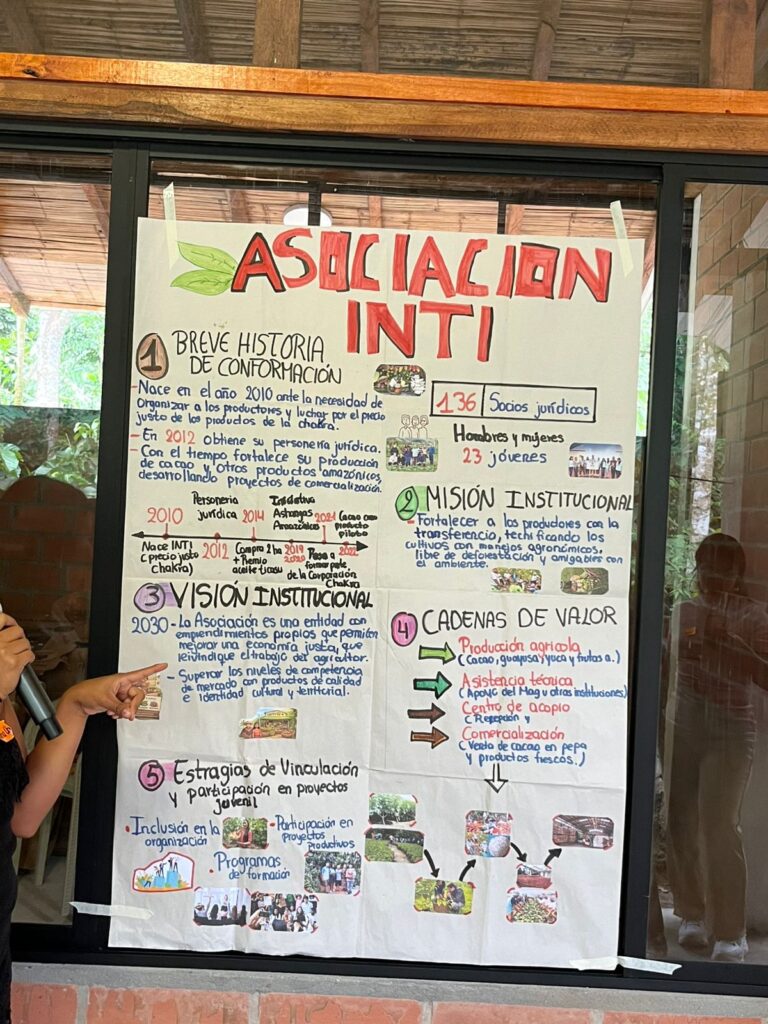 ASOCIACION
INTI
1 BREVE HISTORIA
DE CONFORMACIÓN
-Nace en el año 2010 ante la necesidad de
Organizar a los productores y luchar por el precio
justo de los productos de la chakra.
- En 2012 obtiene su personería jurídica.
- Con el tiempo fortalece su producción
de cacao y otros productos amazónicos,
desarrollando proyectos de comercialización.
136 Socios jurídicos
Hombres y mujeres
23 jóvenes
Personería
jurídica
Iniciativa
Amazónicos
Cacao como
producto
piloto
2010 2014 2021
Nace INTI
(precio justo
chakra)
2012
Compra 2 ha
+ Premio
aceite
2019
2020
Pasa a
formar parte
de la Corporación
Chakra
2022
2 MISIÓN INSTITUCIONAL
-Fortalecer a los productores con la
transferencia, tecnificando los
cultivos con manejos agronómicos,
libre de deforestación y amigables con
el ambiente.
3 VISIÓN INSTITUCIONAL
2030 - La Asociación es una entidad con
emprendimientos propios que permiten
mejorar una economía justa, que
reivindique el trabajo del agricultor.
- Superar los niveles de competencia
de mercado con productos de calidad
e identidad cultural y territorial.
4 CADENAS DE VALOR
Producción agrícola
(Cacao, guayusa, yuca y frutas a.)
Asistencia técnica
(Apoyo del Mag y otras instituciones)
Centro de acopio
(Recepción y
Comercialización
(Venta de cacao en pepa
y productos frescos.)
5 Estragias de Vinculación
y participación en proyectos
juvenil
• Inclusión en la
organización
• Participación en
proyectos
productivos
• Programas
de formación